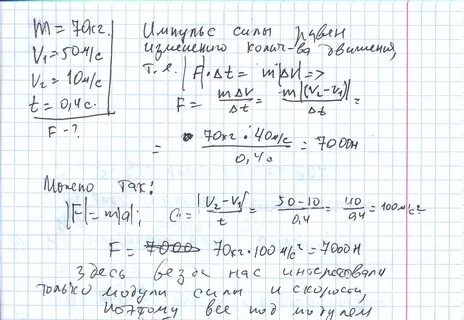 m = 70кг.
V₁ = 50м/с
V₂ = 10м/с
t = 0,4с.
F - ?
Импульс силы равен
изменению колич-ва движения,
т.е. |F|·Δt = m|ΔV| =>
F = mΔV/Δt = m|(V₂-V₁)|/Δt =
= 70кг · 40м/с / 0,4с = 7000н
Можно так:
|F| = m|a|; a = |V₂-V₁|/t = 50-10/0,4 = 40/0,4 = 100м/с²
F = 70кг·100 м/с² = 7000Н
Здесь везде нас интересовали
только модули силы и скорости,
поэтому все под модулем